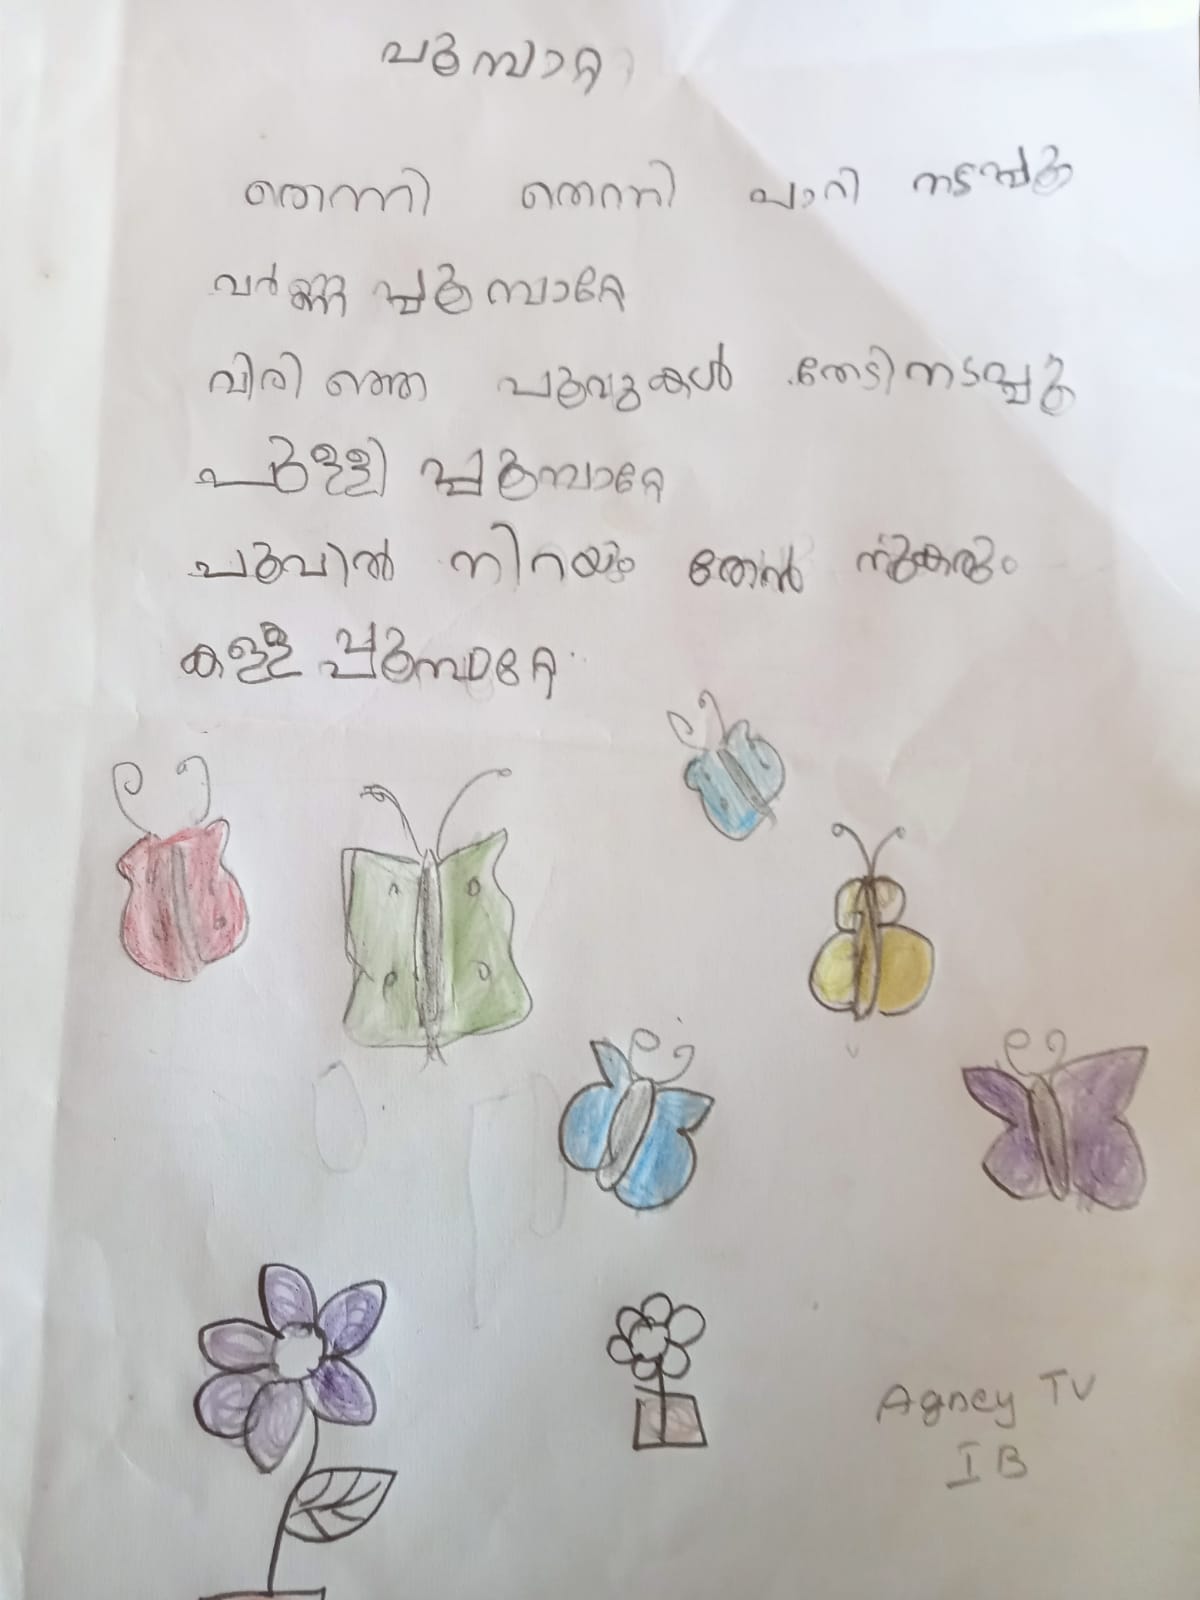 പൂമ്പാറ്റ
തെന്നി തെന്നി പാറി നടപ്പൂ
വർണ്ണ പ്പൂമ്പാറ്റേ
വിരിഞ്ഞ പൂവുകൾ തേടി നടപ്പൂ
പുള്ളി പ്പൂമ്പാറ്റേ
പൂവിൽ നിറയും തേൻ നുകരും
കള്ള പ്പൂമ്പാറ്റേ
Agney TV
I B